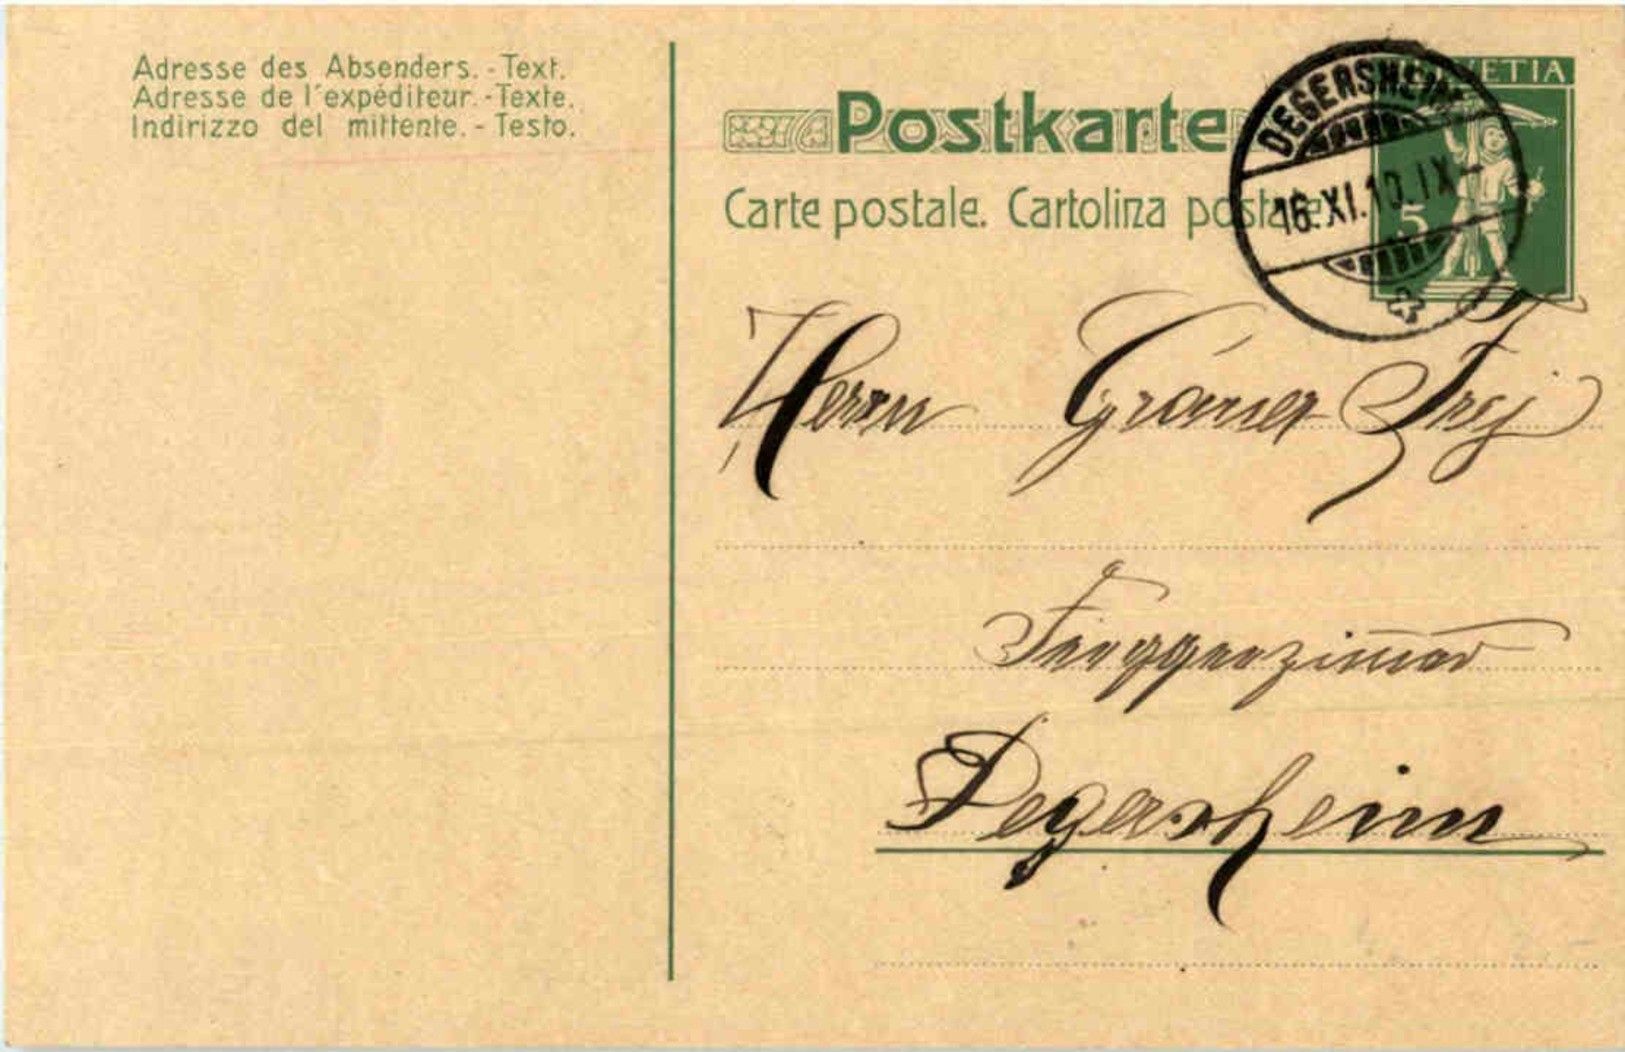 Adresse des Absenders. - Text.
Adresse de l'expéditeur. - Texte.
Indirizzo del mittente. - Testo.
Postkarte
Carte postale. Cartolina postale
HELVETIA
5
DEGERSHEIM
16.XI.10.IX-
Herrn
Degersheim